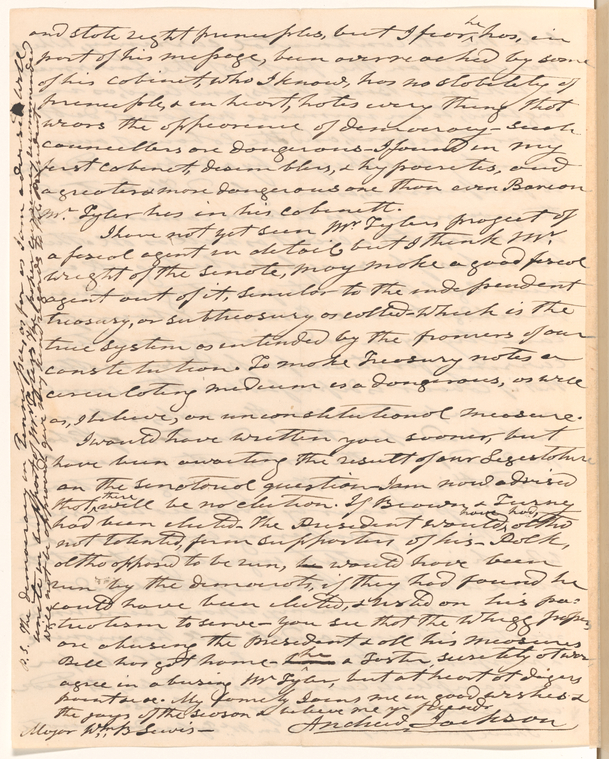 and state right principles, but I fear, he has, in
part of his message, been overreached by some
of his cabinet, who I know, has no stability of
principle, & in heart, hates every thing that
wears the appearance of democracy – such
councellors are dangerous – I found in my
first cabinet, dissemblers, & hypocrites, and
a greater & more dangerous one than even
Mr. Tyler has in his cabinett.
I have not yet seen Mr Tylers project of
a fiscal agent in detail, but I think Mr.
wright of the senate, may make a good fiscal
agent out of it, similar to the independant
treasury, or subtreasury so called – Which is the
true system as intended by the framers of our
constitution. To make Treasury notes a
circulating medium is a dangerous, as well
as, I believe, an unconstitutional measure.
I would have written you sooner, but
have been awaiting the result of our Legislature
on the senatorial question – I am now advised
that, there will be no election. If Brown, & Turney
had been elected – the President would, have had, altho
not talented, firm supporters of his – Polk,
altho opposed to be run, would have been
run by the democrats, if they had found he
could have been elected, & relied on his pa-
triotism to serve – you see that the Whigg papers
are abusing the President & all his measures
Bell has got home – & Foster, secretely at work
agree in abusing Mr Tyler, but at heart at
. My family Joins me in good wishes &
the joys of the season & believe me yr friend
Andrew Jackson
Major Wm. B Lewis –
P.S. The democracy in Tennessee, as far as I am advised will
unite in support of Mr Tylers
will not be